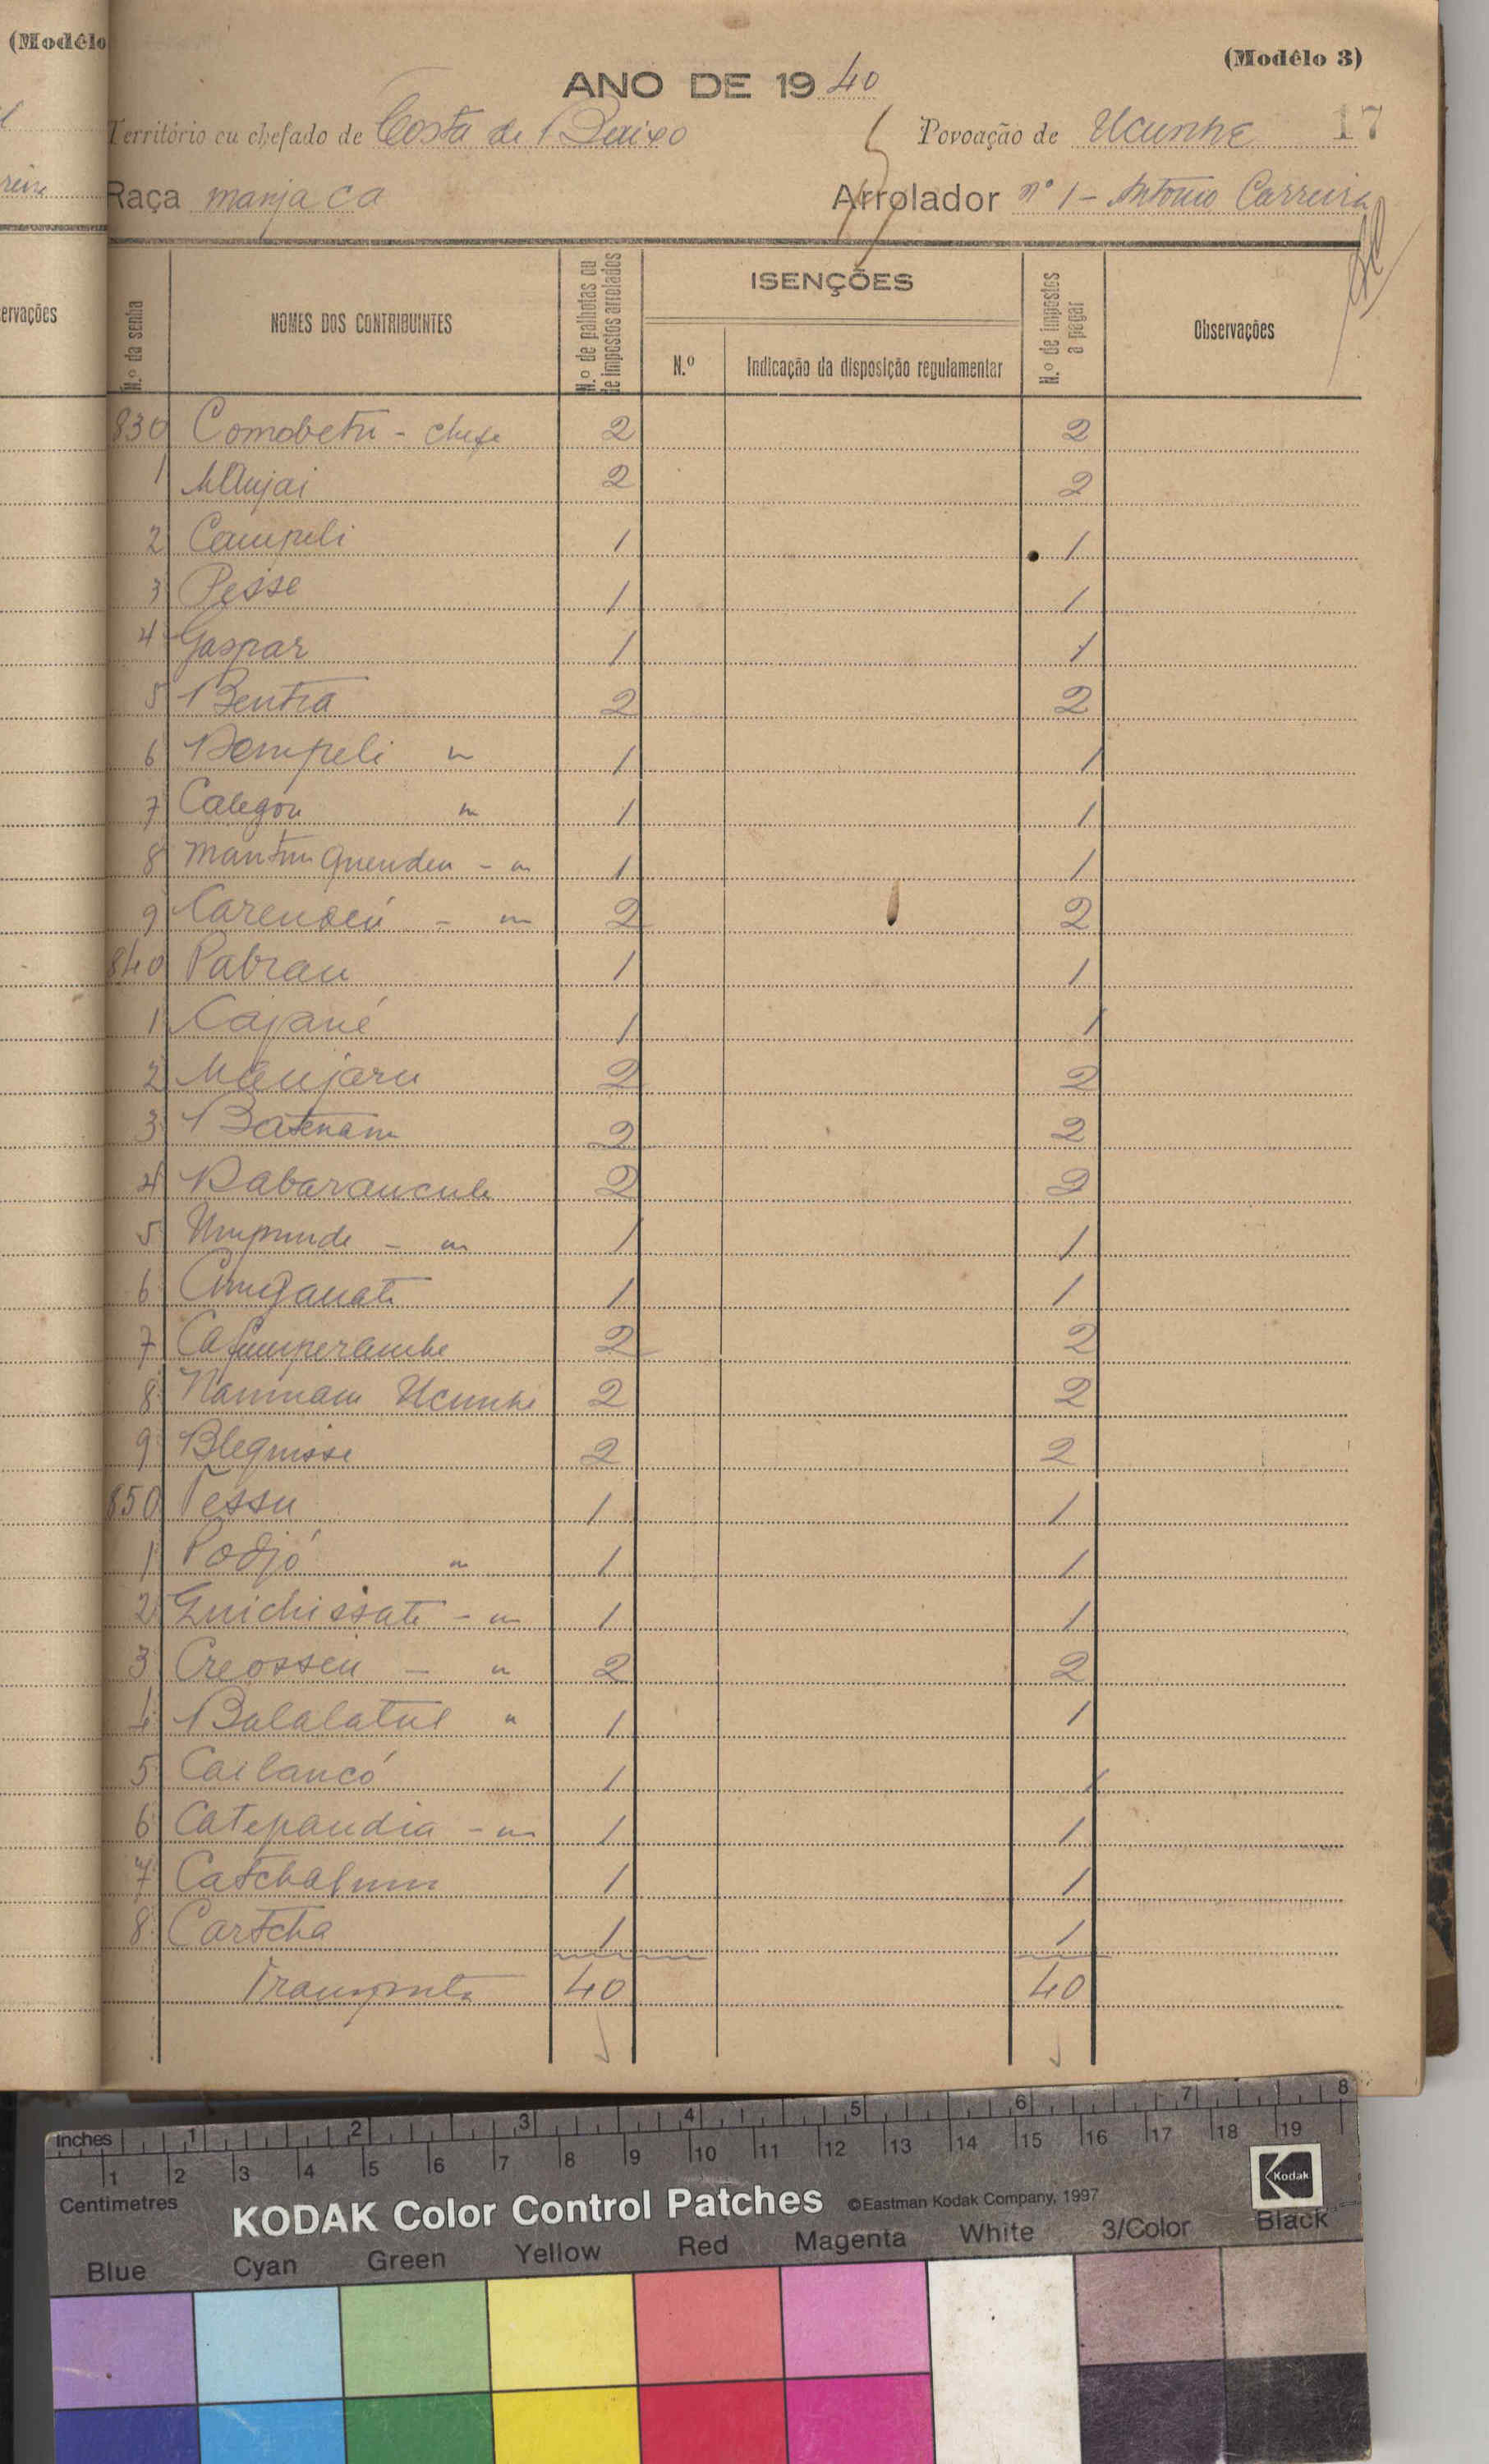 (Modêlo
(Modêlo 3)
ANO DE 1940
Território ou chefado de Costa de Baixo Povoação de Ucunhe 17
Raça manjaca Arrolador nº 1 - Antonio Carreira
ervações
N.º da senha
NOMES DOS CONTRIBUINTES
N.º de palhotas ou de impostos arrolados
ISENÇÕES
N.º
Indicação da disposição regulamentar
N.º de impostos a pagar
Observações
830 Comobetu - chefe 2 2
1 2 2
2 Campeli 1 1
3 Pesse 1 1
4 Gaspar 1 1
5 Bentia 2 2
6 Dempeli " 1 1
7 Calegou " 1 1
8 Mantun Quendeu - " 1 1
9 - " 2 2
840 Pabrau 1 1
1 Cajané 1 1
2 Maujaru 2 2
3 Batenam 2 2
4 Dabarancule 2 2
5 - " 1 1
6 1 1
7 2 2
8 Ucunhe 2 2
9 Blequisse 2 2
850 Pessu 1 1
1 Podjó " 1 1
2 Guichissate - " 1 1
3 Creosseu - " 2 2
4 Balalatul " 1 1
5 Cailancó 1 1
6 Catepandia - " 1 1
7 Catchafum 1 1
8 Cartcha 1 1
Transporte 40 40
inches 1 2 3 4 5 6 7 8
1 2 3 4 5 6 7 8 9 10 11 12 13 14 15 16 17 18 19
Centimetres
KODAK Color Control Patches ©Eastman Kodak Company, 1997 Kodak
Blue Cyan Green Yellow Red Magenta White 3/Color Black